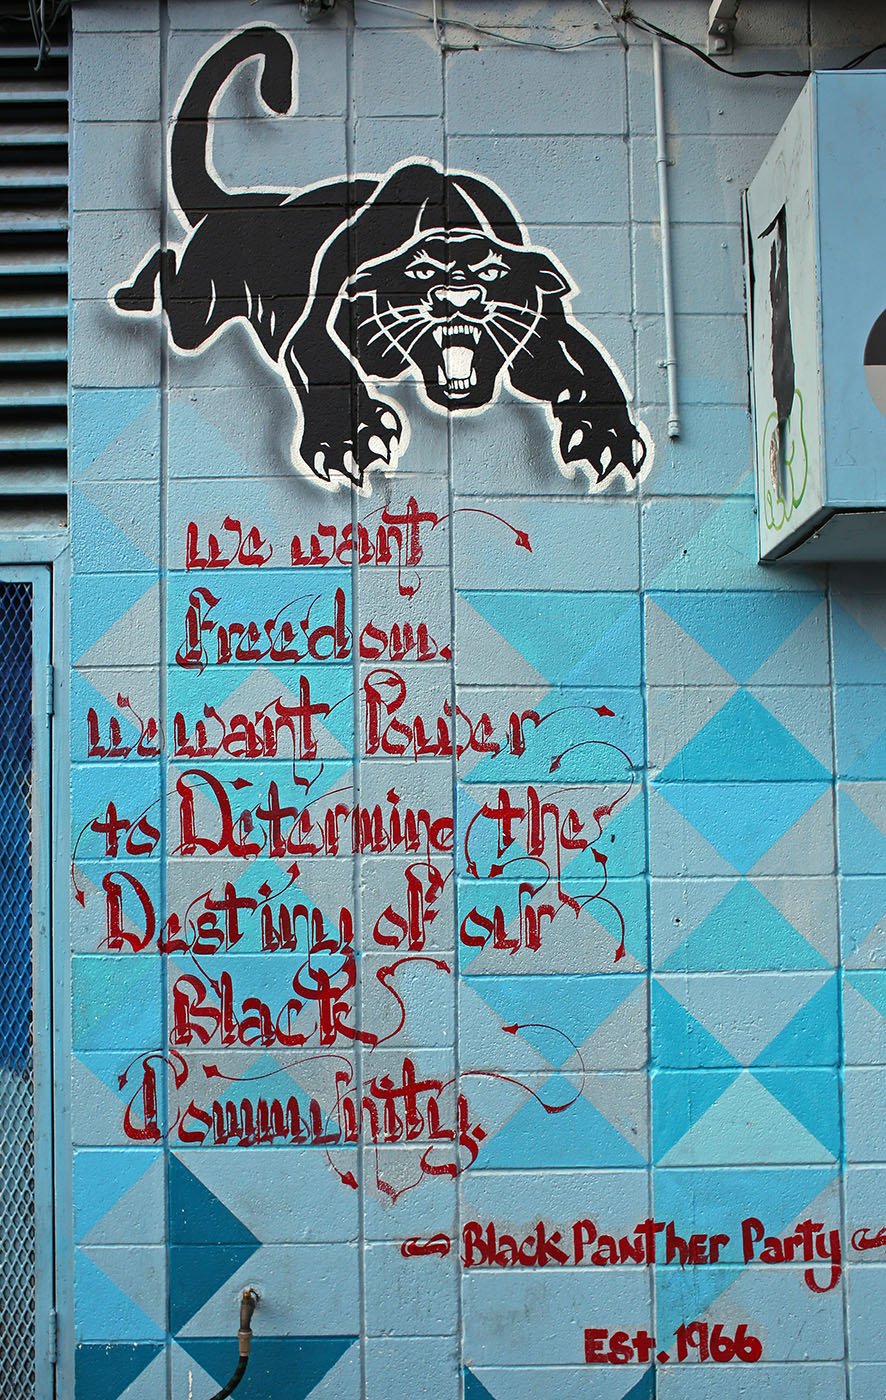 We want
Freedom.
We want Power
to Determine the
Destiny of our
Black
Community.
~ Black Panther Party ~
Est. 1966